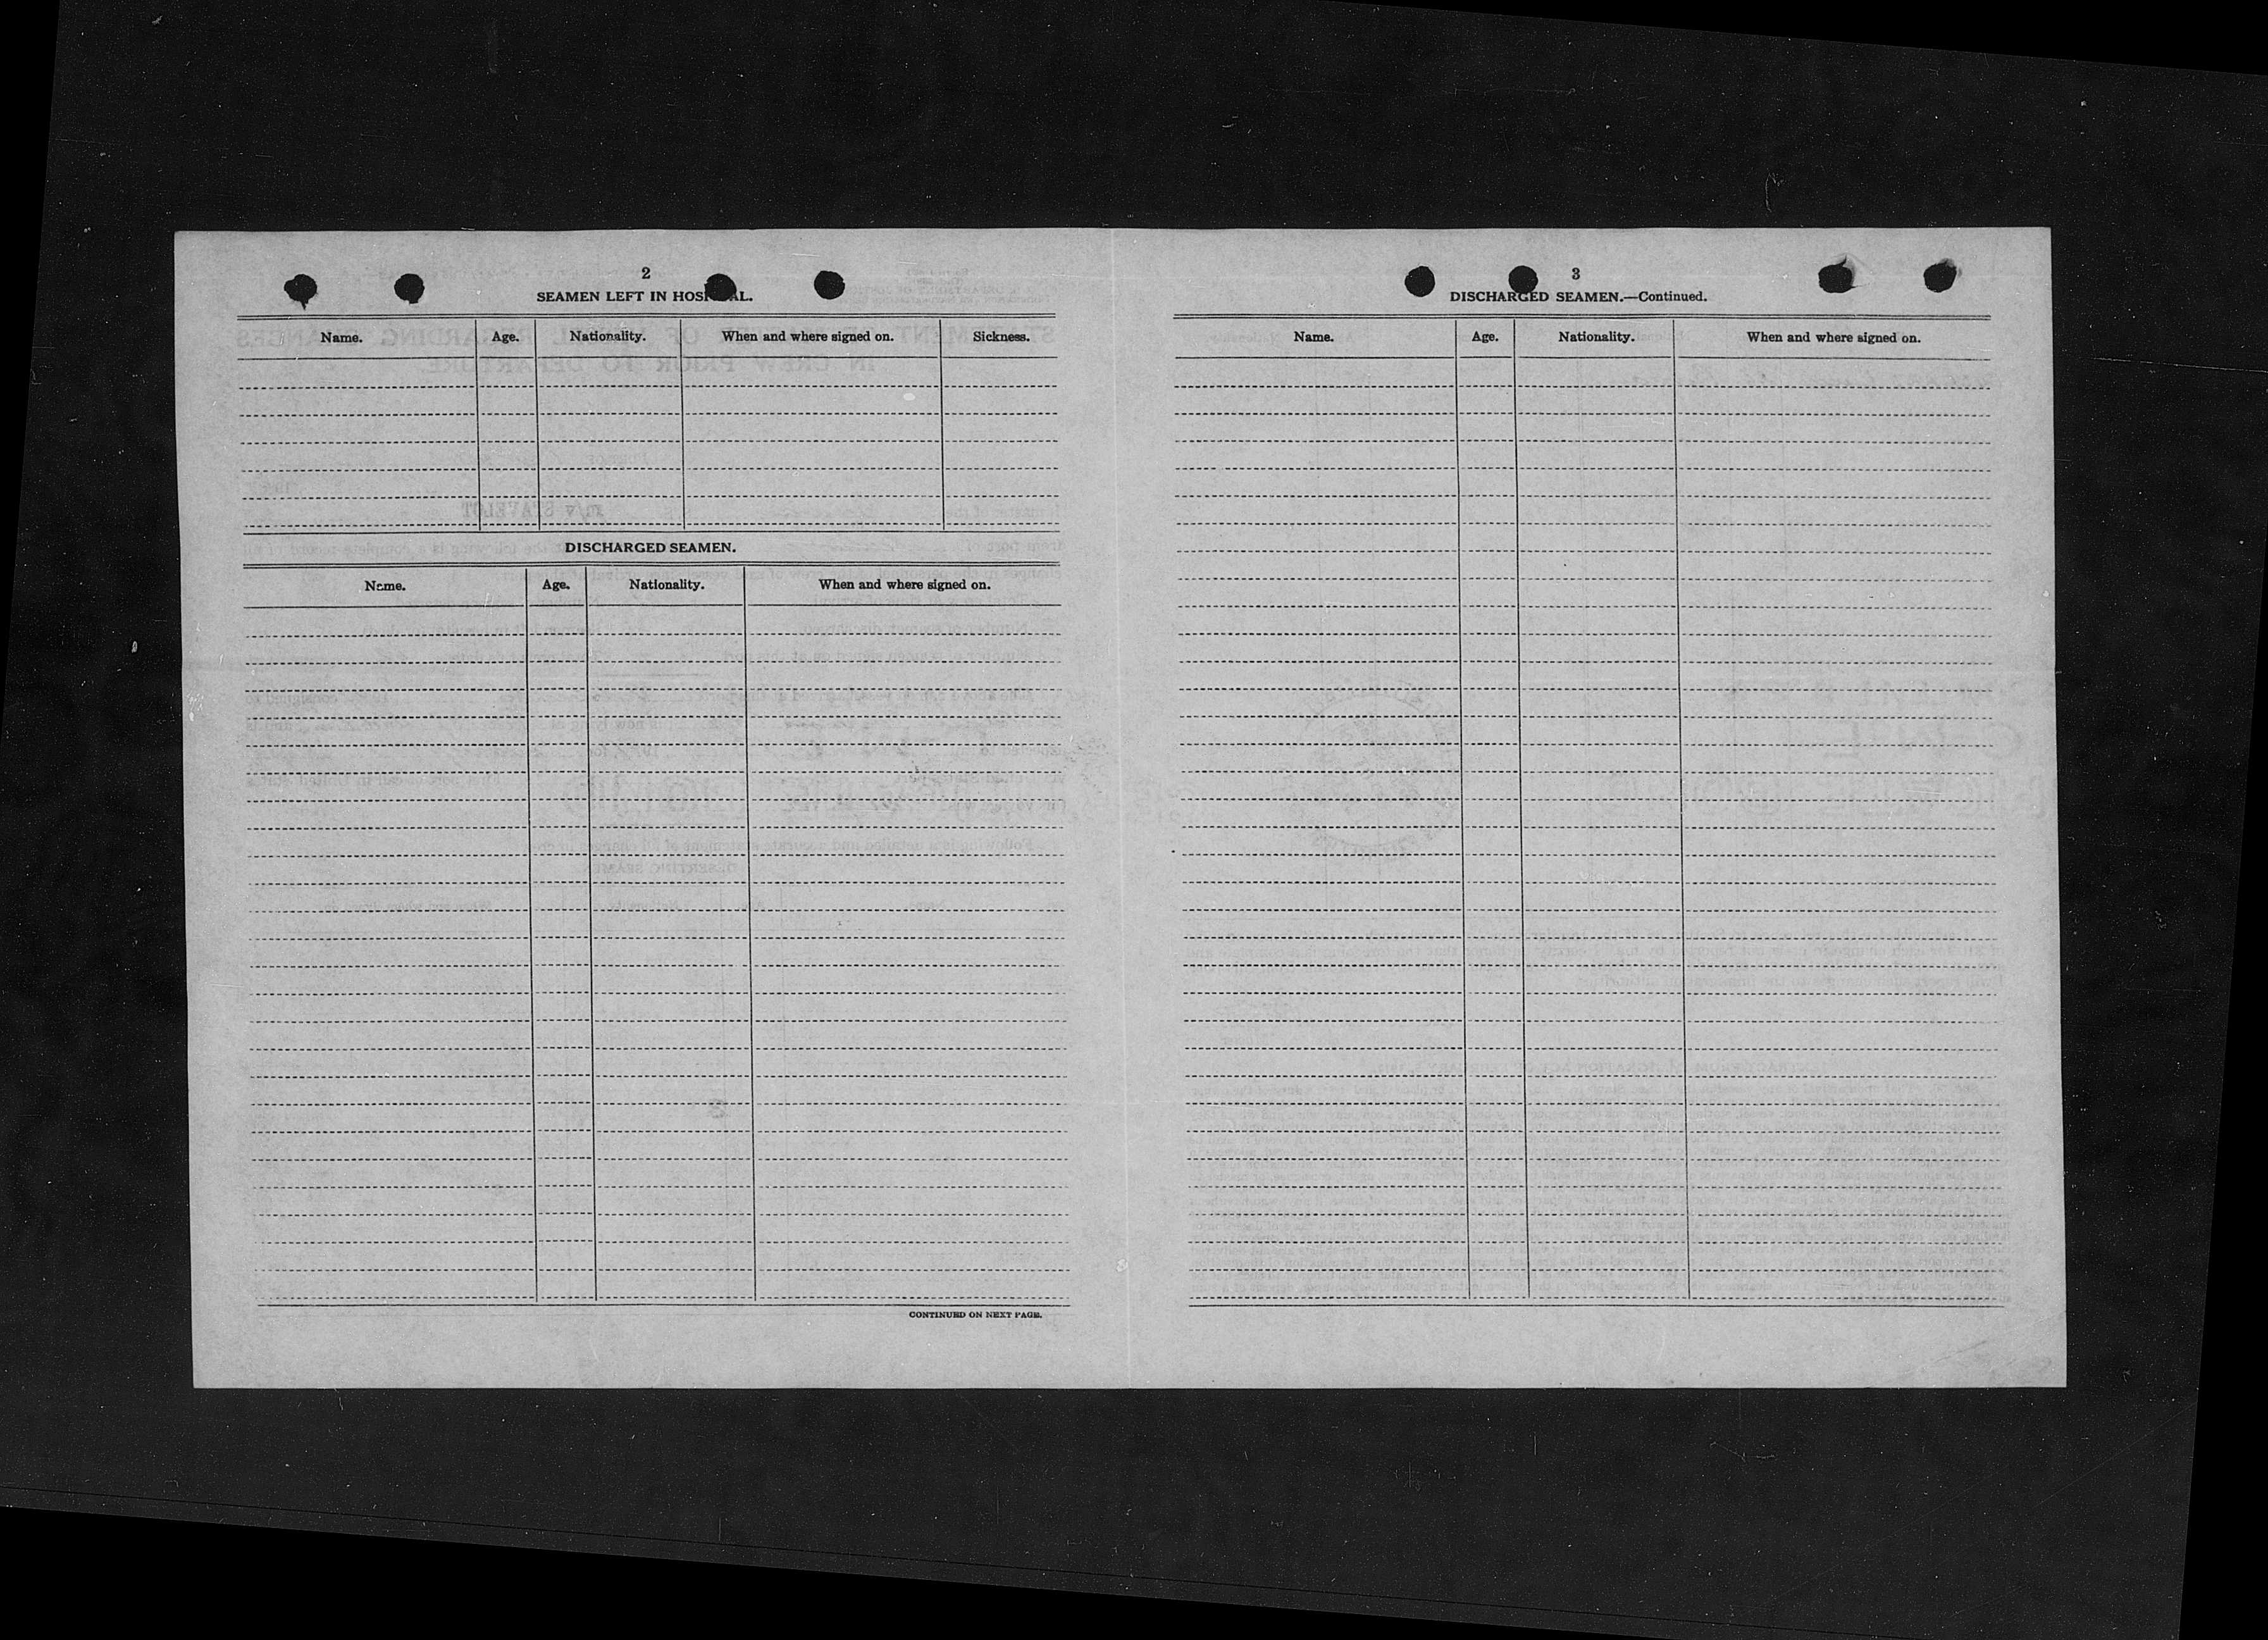 2
SEAMEN LEFT IN HOSPITAL.
Name. Age. Nationality. When and where signed on. Sickness.
DISCHARGED SEAMEN.
Name. Age. Nationality. When and where signed on.
CONTINUED ON NEXT PAGE.
3
DISCHARGED SEAMEN.—Continued.
Name. Age. Nationality. When and where signed on.